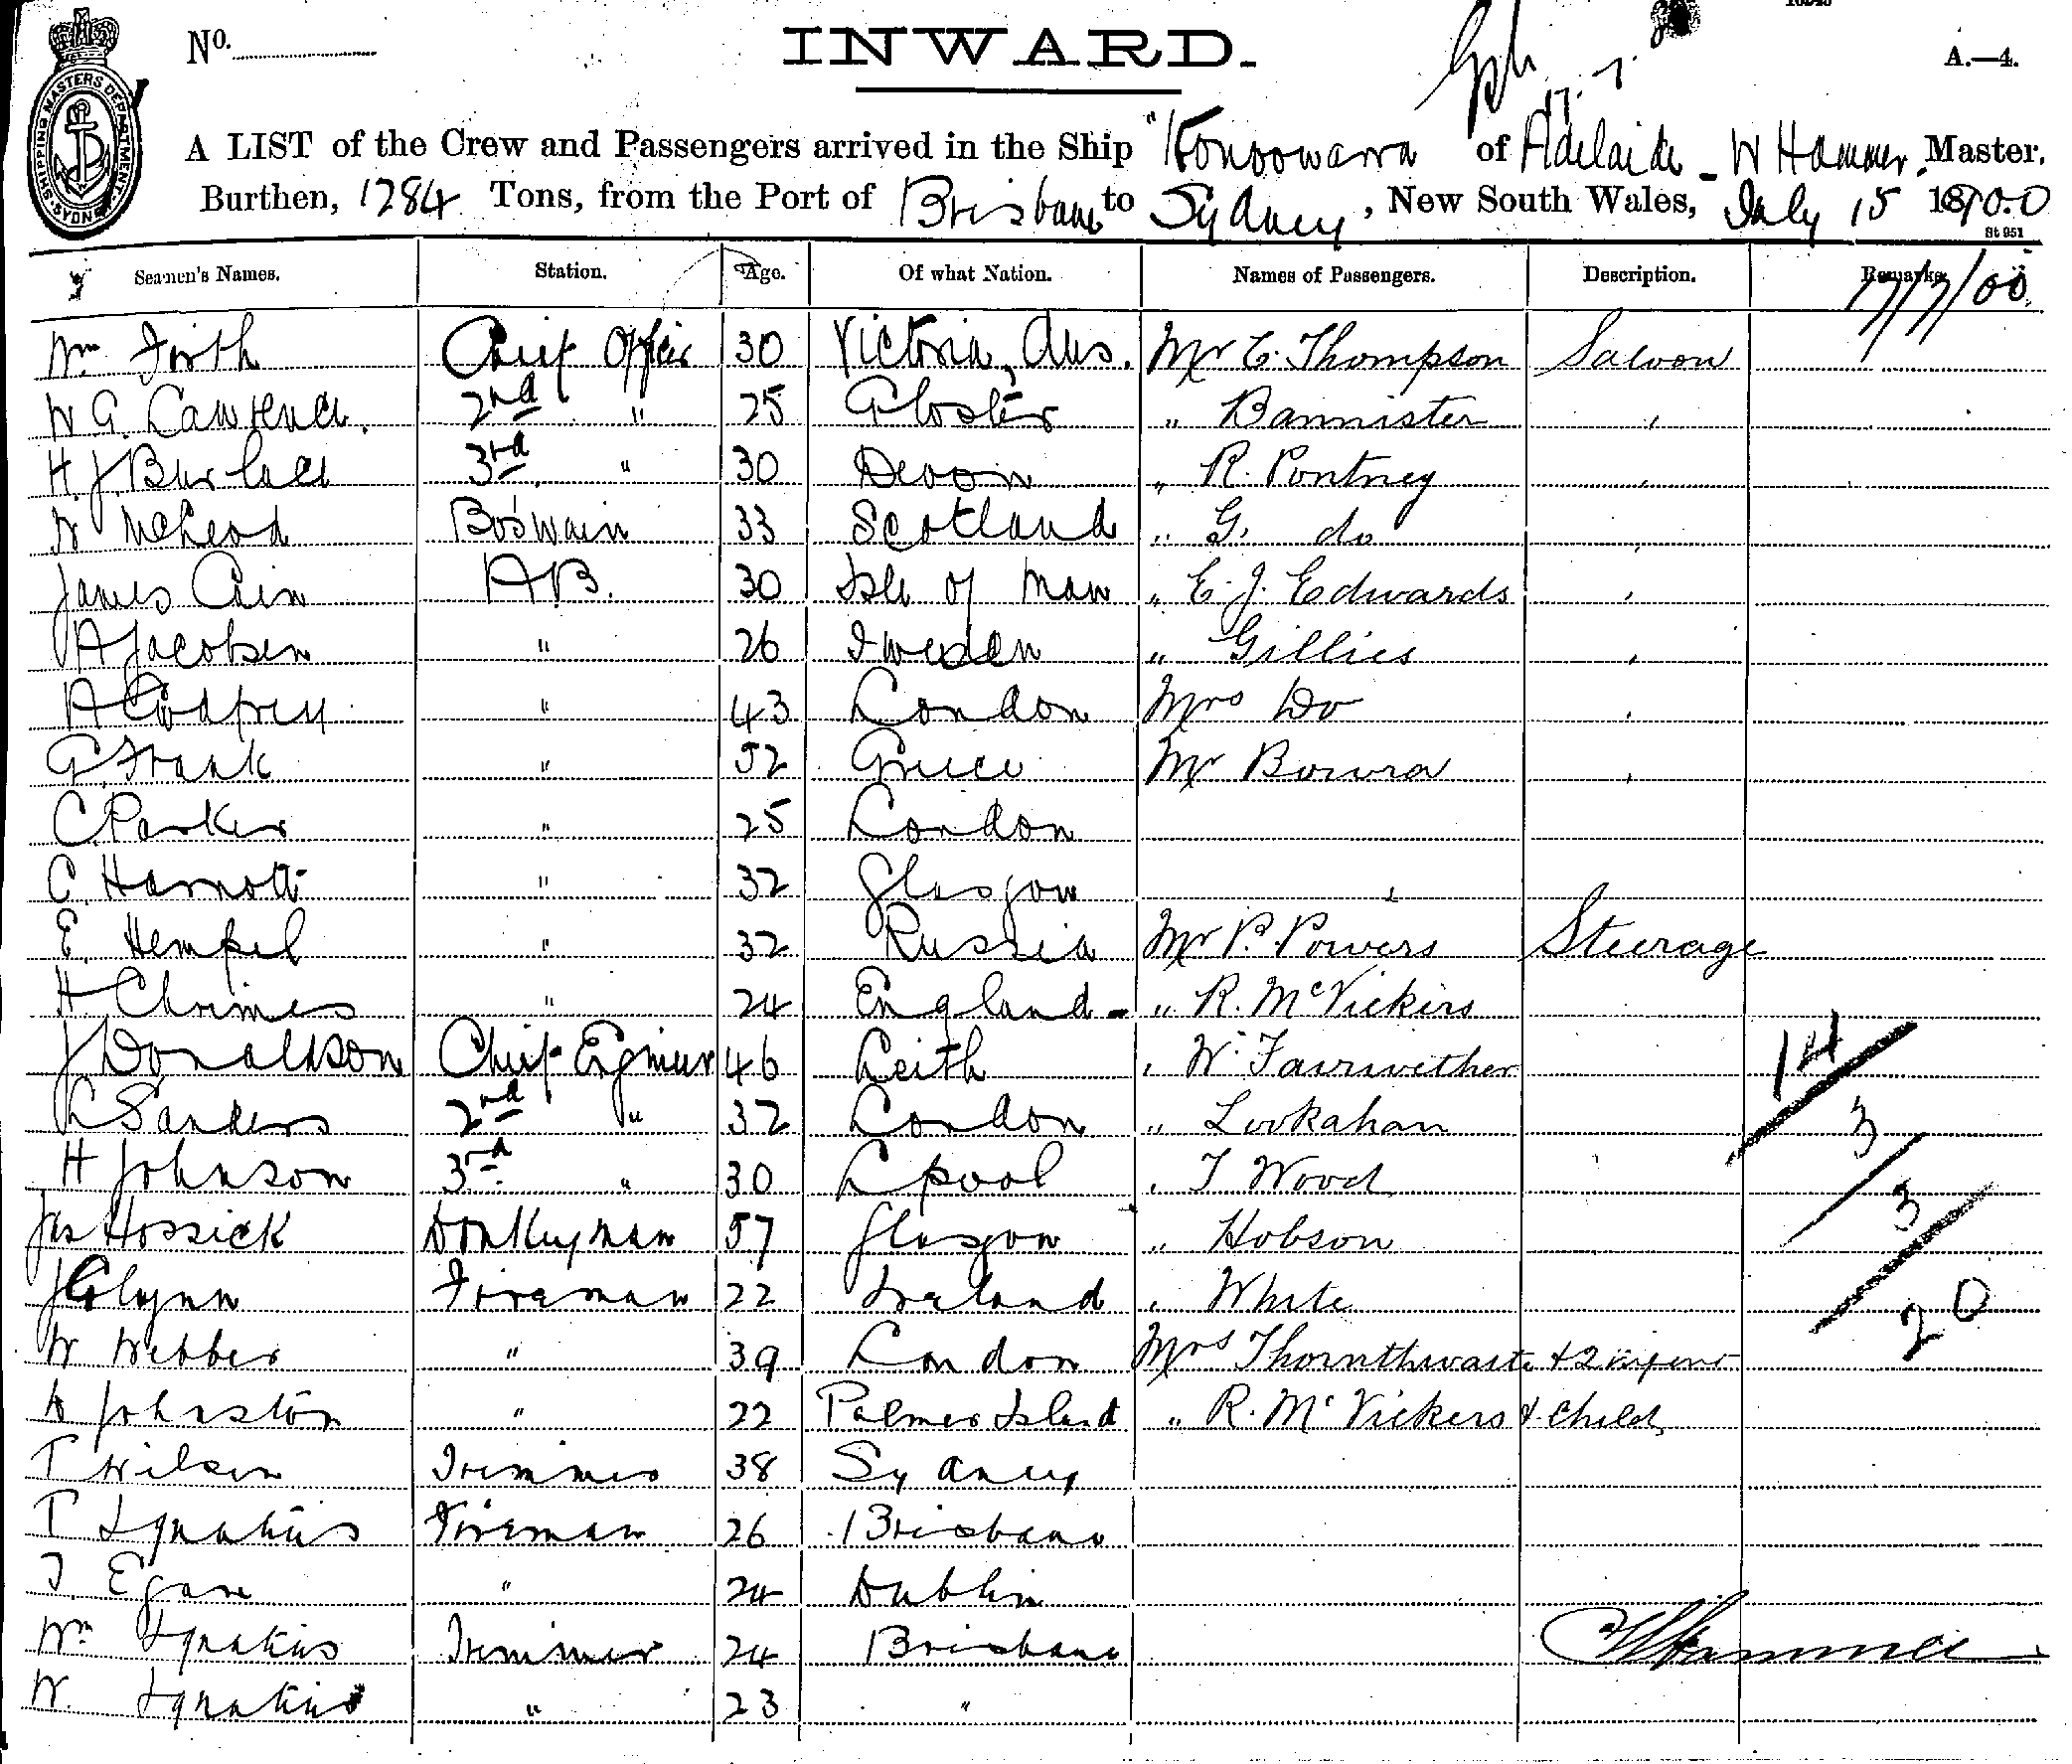 No.
INWARD.
A.—4.
SHIPPING MASTERS DEPARTMENT. SYDNEY
A LIST of the Crew and Passengers arrived in the Ship "Konoowarra of Adelaide - W Hammer, Master.
Burthen, 1284 Tons, from the Port of Brisbane to Sydney, New South Wales, July 15 1900
St 951
Seamen's Names. Station. Age. Of what Nation. Names of Passengers. Description. Remarks.
17/7/00
Wm Forth Chief Officer 30 Victoria, Aus. Mr C. Thompson Saloon
W G. Lawrence. 2nd " 25 Gloster " Bannister "
H. J. 3rd " 30 Devon " R. Pontney "
W McLeod Bos'wain 33 Scotland " G. do "
James Cain A.B. 30 Isle of Man " E. J. Edwards "
A Jacobsen " 26 Sweden " Gillies "
A Godfrey " 43 London Mrs Do "
G. Frank " 52 Greece Mr Bowra "
C. Parker " 25 London
C. Harnott " 32 Glasgow
E. Hempel " 32 Russia Mr P. Powers Steerage
H Chrimes " 24 England - " R. McVickers
J Donaldson Chief Engineer 46 Leith " W. Fairwether
L Sanders 2nd " 32 London " Lookahan
H Johnson 3rd " 30 Lpool " T Wood
Jas Hossick Donkeyman 57 Glasgow " Hobson
J Glynn Fireman 22 Ireland " White
W Webber " 39 London Mrs Thornthwaite & 2 infants
A Johnston " 22 Palmer Island " R. McVickers & child
T Wilson Trimmer 38 Sydney
T Ignatius Fireman 26 Brisbane
T. Egan " 24 Dublin
Wm Ignatius Trimmer 24 Brisbane
W. Ignatius " 23 "
14
3
3
20
W Hammer